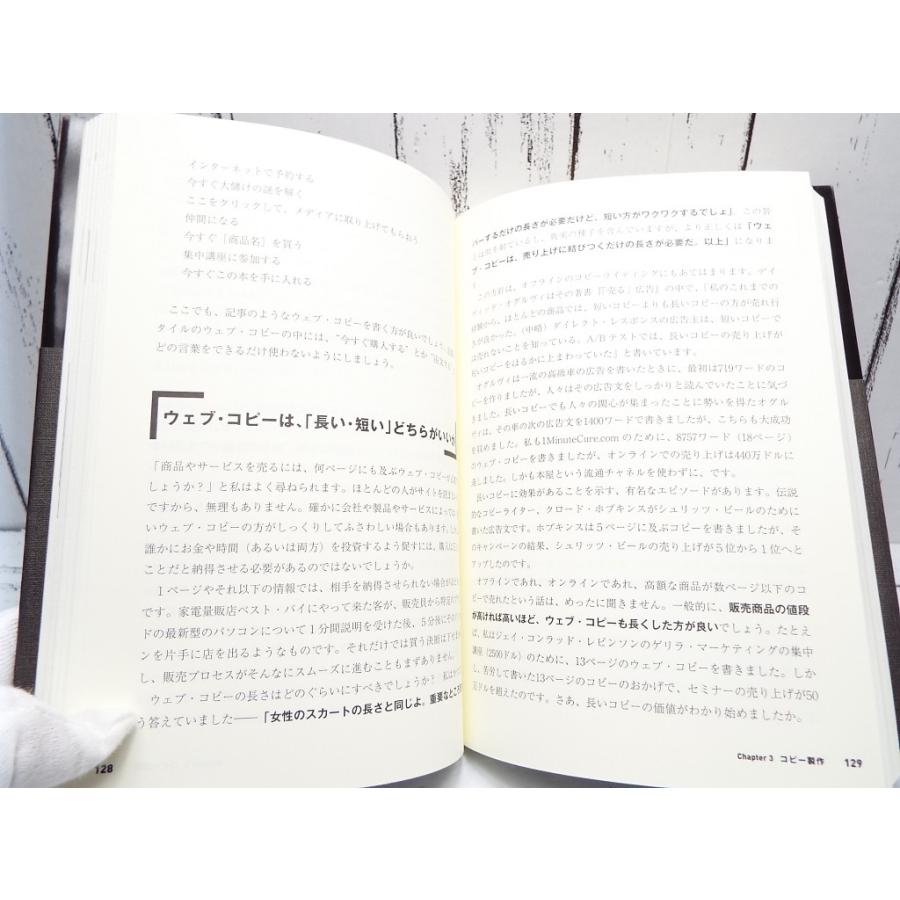 インターネットで予約する
今すぐ大儲けの謎を解く
ここをクリックして、メディアに取り上げてもらおう
仲間になる
今すぐ［商品名］を買う
集中講座に参加する
今すぐこの本を手に入れる
ここでも、記事のようなウェブ・コピーを書く方が良いでしょう。
タイルのウェブ・コピーの中には、“今すぐ購入する”とか
どの言葉をできるだけ使わないようにしましょう。
ウェブ・コピーは、「長い・短い」どちらがいい
「商品やサービスを売るには、何ページにも及ぶウェブ・コピーが
しょうか？」と私はよく尋ねられます。ほとんどの人がサイトを
ですから、無理もありません。確かに会社や製品やサービスによって
いウェブ・コピーの方がしっくりしてふさわしい場合もあります。
誰かにお金や時間（あるいは両方）を投資するよう促すには、購入は
ことだと納得させる必要があるのではないでしょうか。
1ページやそれ以下の情報では、相手を納得させられない場合が
です。家電量販店ベスト・バイにやって来た客が、販売員から特定
ドの最新型のパソコンについて1分間説明を受けた後、5分後に
ンを片手に店を出るようなものです。それだけでは買う決断は下せ
し、販売プロセスがそんなにスムーズに進むこともまずありません。
ウェブ・コピーの長さはどのぐらいにすべきでしょうか？ 私は
う答えていました――「女性のスカートの長さと同じよ。重要なところ
128
バーするだけの長さが必要だけど、短い方がワクワクするでしょ」。この答
えは的を射ているし、真実の種子を含んでいますが、より正しくは「ウェ
ブ・コピーは、売り上げに結びつくだけの長さが必要だ。以上」になりま
す。
この方針は、オフラインのコピーライティングにもあてはまります。デイ
ヴィッド・オグルヴィはその著書『「売る」広告』の中で、「私のこれまでの
経験から、ほとんどの商品では、短いコピーよりも長いコピーの方が売れ行
きが良かった。（中略）ダイレクト・レスポンスの広告主は、短いコピーでは
売れないことを知っている。A/Bテストでは、長いコピーの売り上げが
短いコピーをはるかに上まわっていた」と書いています。
オグルヴィは一流の高級車の広告を書いたときに、最初は719ワードのコ
ピーを作りましたが、人々はその広告文をしっかりと読んでいたことに気づ
きました。長いコピーでも人々の関心が集まったことに勢いを得たオグル
ヴィは、その車の次の広告文を1400ワードで書きましたが、こちらも大成功
を収めました。私も1MinuteCure.comのために、8757ワード（18ページ）
のウェブ・コピーを書きましたが、オンラインでの売り上げは440万ドルに
達しました。しかも本屋という流通チャネルを使わずに、です。
長いコピーに効果があることを示す、有名なエピソードがあります。伝説
的なコピーライター、クロード・ホプキンスがシュリッツ・ビールのために
書いた広告文です。ホプキンスは5ページに及ぶコピーを書きましたが、そ
のキャンペーンの結果、シュリッツ・ビールの売り上げが5位から1位へと
アップしたのです。
オフラインであれ、オンラインであれ、高額な商品が数ページ以下のコ
ピーで売れたという話は、めったに聞きません。一般的に、販売商品の値段
が高ければ高いほど、ウェブ・コピーも長くした方が良いでしょう。たとえ
ば、私はジェイ・コンラッド・レビンソンのゲリラ・マーケティングの集中
講座（2500ドル）のために、13ページのウェブ・コピーを書きました。しか
し、苦労して書いた13ページのコピーのおかげで、セミナーの売り上げが50
万ドルを超えたのです。さあ、長いコピーの価値がわかり始めましたか。
Chapter 3 コピー製作 129